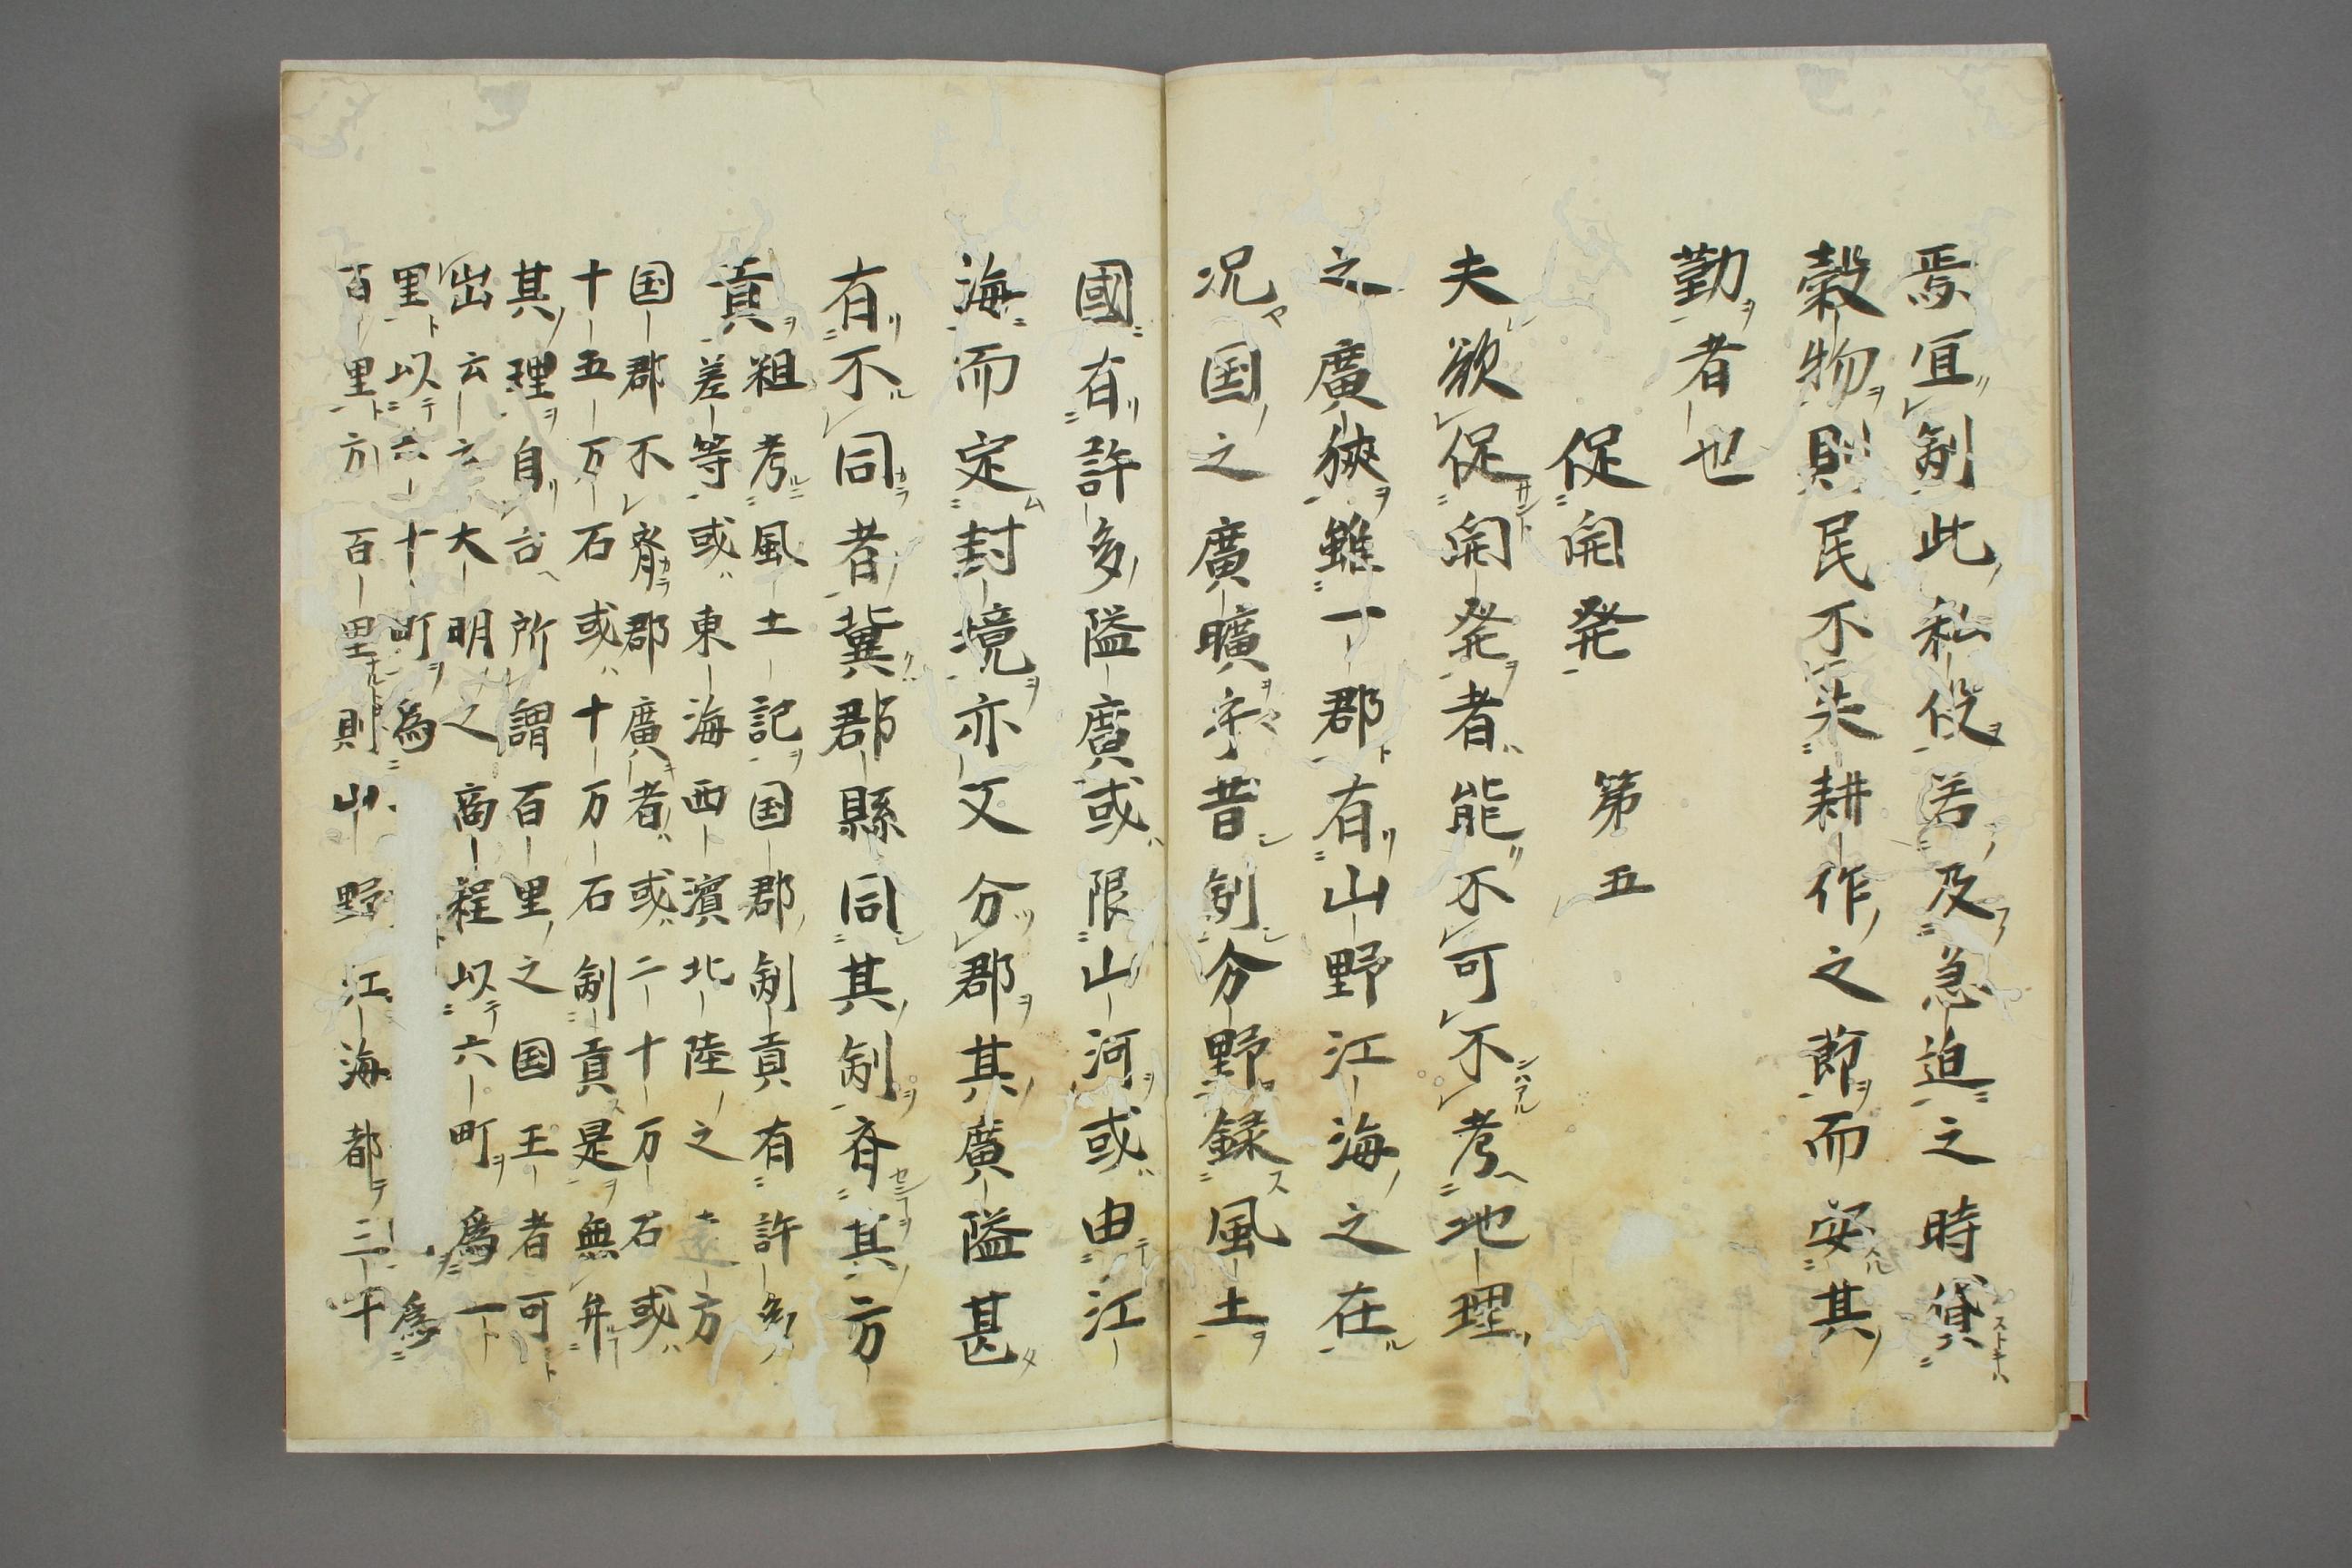 焉宜制此私役若及急迫之時貸
穀物則民不失耕作之節而安其
勤者也
促開発 第五
夫欲促開発者能不可不考地理
之廣狹雖一郡有山野江海之在
况国之廣曠乎昔制分野録風土
國有許多隘廣或限山河或由江
海而定封境亦又分郡其廣隘甚
有不同者冀郡縣同其制斉其方
貢粗考風土記国郡制貢有許多
差等或東海西濱北陸之遠方
国郡不齊郡廣者或二十万石或
十五万石或十万石制貢是無弁
其理自古所謂百里之国王者可
出云云大明之商程以六町為一
里以六十町為為
百里方百里則山野江海都三千